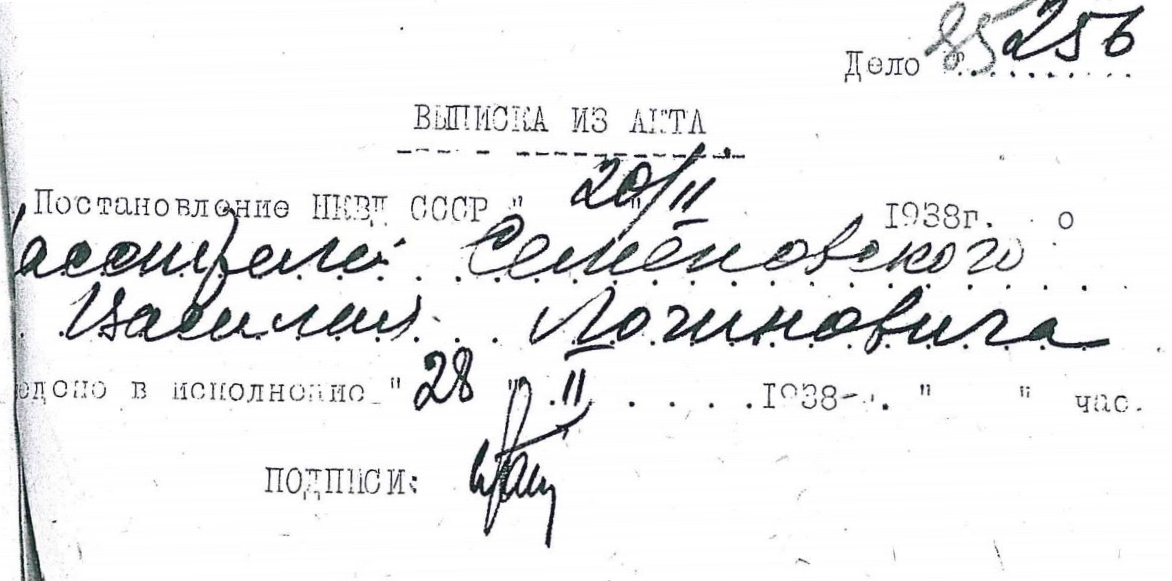 Дело 85256
ВЫПИСКА ИЗ АКТА
Постановление НКВД СССР " 20/II " 1938г. о
расстреле Семёновского
Василия Логиновича
едено в исполнение " 28 " II 1938 г. " " час.
ПОДПИСИ: